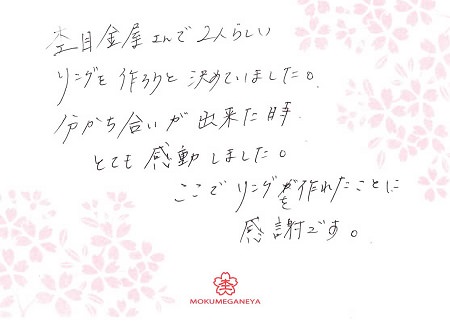 杢目金屋さんで2人らしい
リングを作ろうと決めていました。
分かち合いが出来た時
とても感動しました。
ここでリングを作れたことに
感謝です。
杢
MOKUMEGANEYA